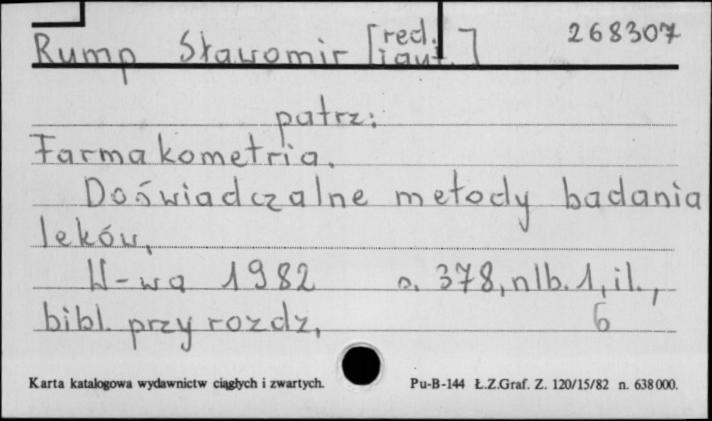 Rump Sławomir [red. i aut.] 268307
patrz:
Farmakometria.
Doświadczalne metody badania
leków.
W-wa 1982 s. 378, nlb. 1, il.,
bibl. przy rozdz. 6
Karta katalogowa wydawnictw ciągłych i zwartych. Pu-B-144 Ł.Z.Graf. Z. 120/15/82 n. 638000.